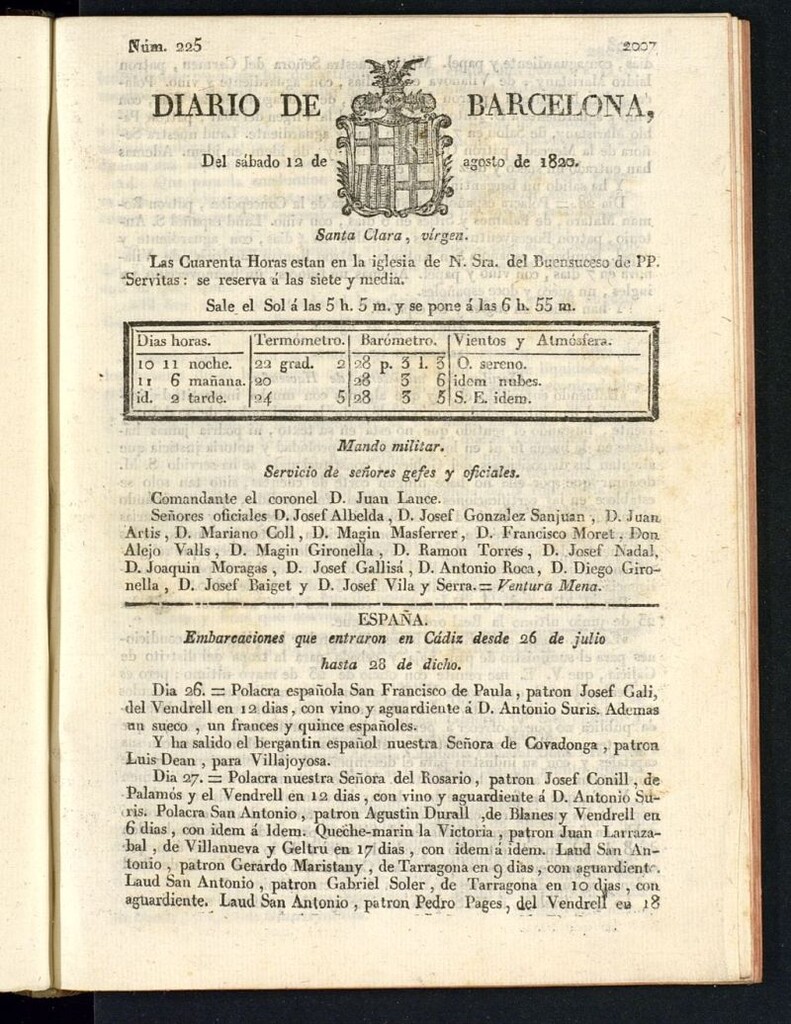 Núm. 225 2007
DIARIO DE BARCELONA,
Del sábado 12 de agosto de 1820.
Santa Clara, vírgen.
Las Cuarenta Horas estan en la iglesia de N. Sra. del Buensuceso de PP.
Servitas: se reserva á las siete y media.
Sale el Sol á las 5 h. 5 m. y se pone á las 6 h. 55 m.
Dias horas. Termómetro. Barómetro. Vientos y Atmósfera.
10 11 noche. 22 grad. 2 28 p. 3 l. 3 O. sereno.
11 6 mañana. 20 28 3 6 idem nubes.
id. 2 tarde. 24 5 28 3 5 S. E. idem.
Mando militar.
Servicio de señores gefes y oficiales.
Comandante el coronel D. Juan Lance.
Señores oficiales D. Josef Albelda, D. Josef Gonzalez Sanjuan, D. Juan
Artis, D. Mariano Coll, D. Magin Masferrer, D. Francisco Moret, Don
Alejo Valls, D. Magin Gironella, D. Ramon Torres, D. Josef Nadal,
D. Joaquin Moragas, D. Josef Gallisá, D. Antonio Roca, D. Diego Giro-
nella, D. Josef Baiget y D. Josef Vila y Serra.= Ventura Mena.
ESPAÑA.
Embarcaciones que entraron en Cádiz desde 26 de julio
hasta 28 de dicho.
Dia 26. = Polacra española San Francisco de Paula, patron Josef Gali,
del Vendrell en 12 dias, con vino y aguardiente á D. Antonio Suris. Ademas
un sueco, un frances y quince españoles.
Y ha salido el bergantin español nuestra Señora de Covadonga, patron
Luis Dean, para Villajoyosa.
Dia 27. = Polacra nuestra Señora del Rosario, patron Josef Conill, de
Palamós y el Vendrell en 12 dias, con vino y aguardiente á D. Antonio Su-
ris. Polacra San Antonio, patron Agustin Durall, de Blanes y Vendrell en
6 dias, con idem á Idem. Queche-marin la Victoria, patron Juan Larraza-
bal, de Villanueva y Geltrú en 17 dias, con idem á idem. Laud San An-
tonio, patron Gerardo Maristany, de Tarragona en 9 dias, con aguardiente.
Laud San Antonio, patron Gabriel Soler, de Tarragona en 10 dias, con
aguardiente. Laud San Antonio, patron Pedro Pages, del Vendrell en 18